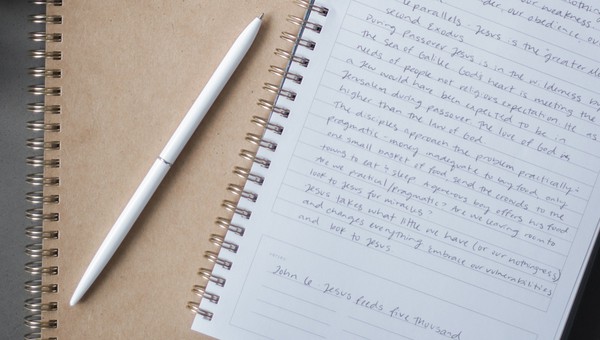 parallels - Jesus is the "greater
second Exodus
During Passover Jesus is in the wilderness by
the sea of Galilee God's heart is meeting the
needs of people not religious expectation ite as
a Jew would have been expected to be in
Jerusalem during passover. The love of God is
higher than the law of God
The disciples approach the problem practically +
pragmatic - money inadequate to buy food, only
one small basket of food send the crowds to the
towns to eat + sleep. A generous boy offers his food
Are we practical/pragmatic? Are we leaving room to
look to Jesus for miracles?
Jesus takes what little we have (or our nothingness)
and changes everything. Embrace our vulnerabilities
and look to Jesus
John 6 Jesus feeds five thousand